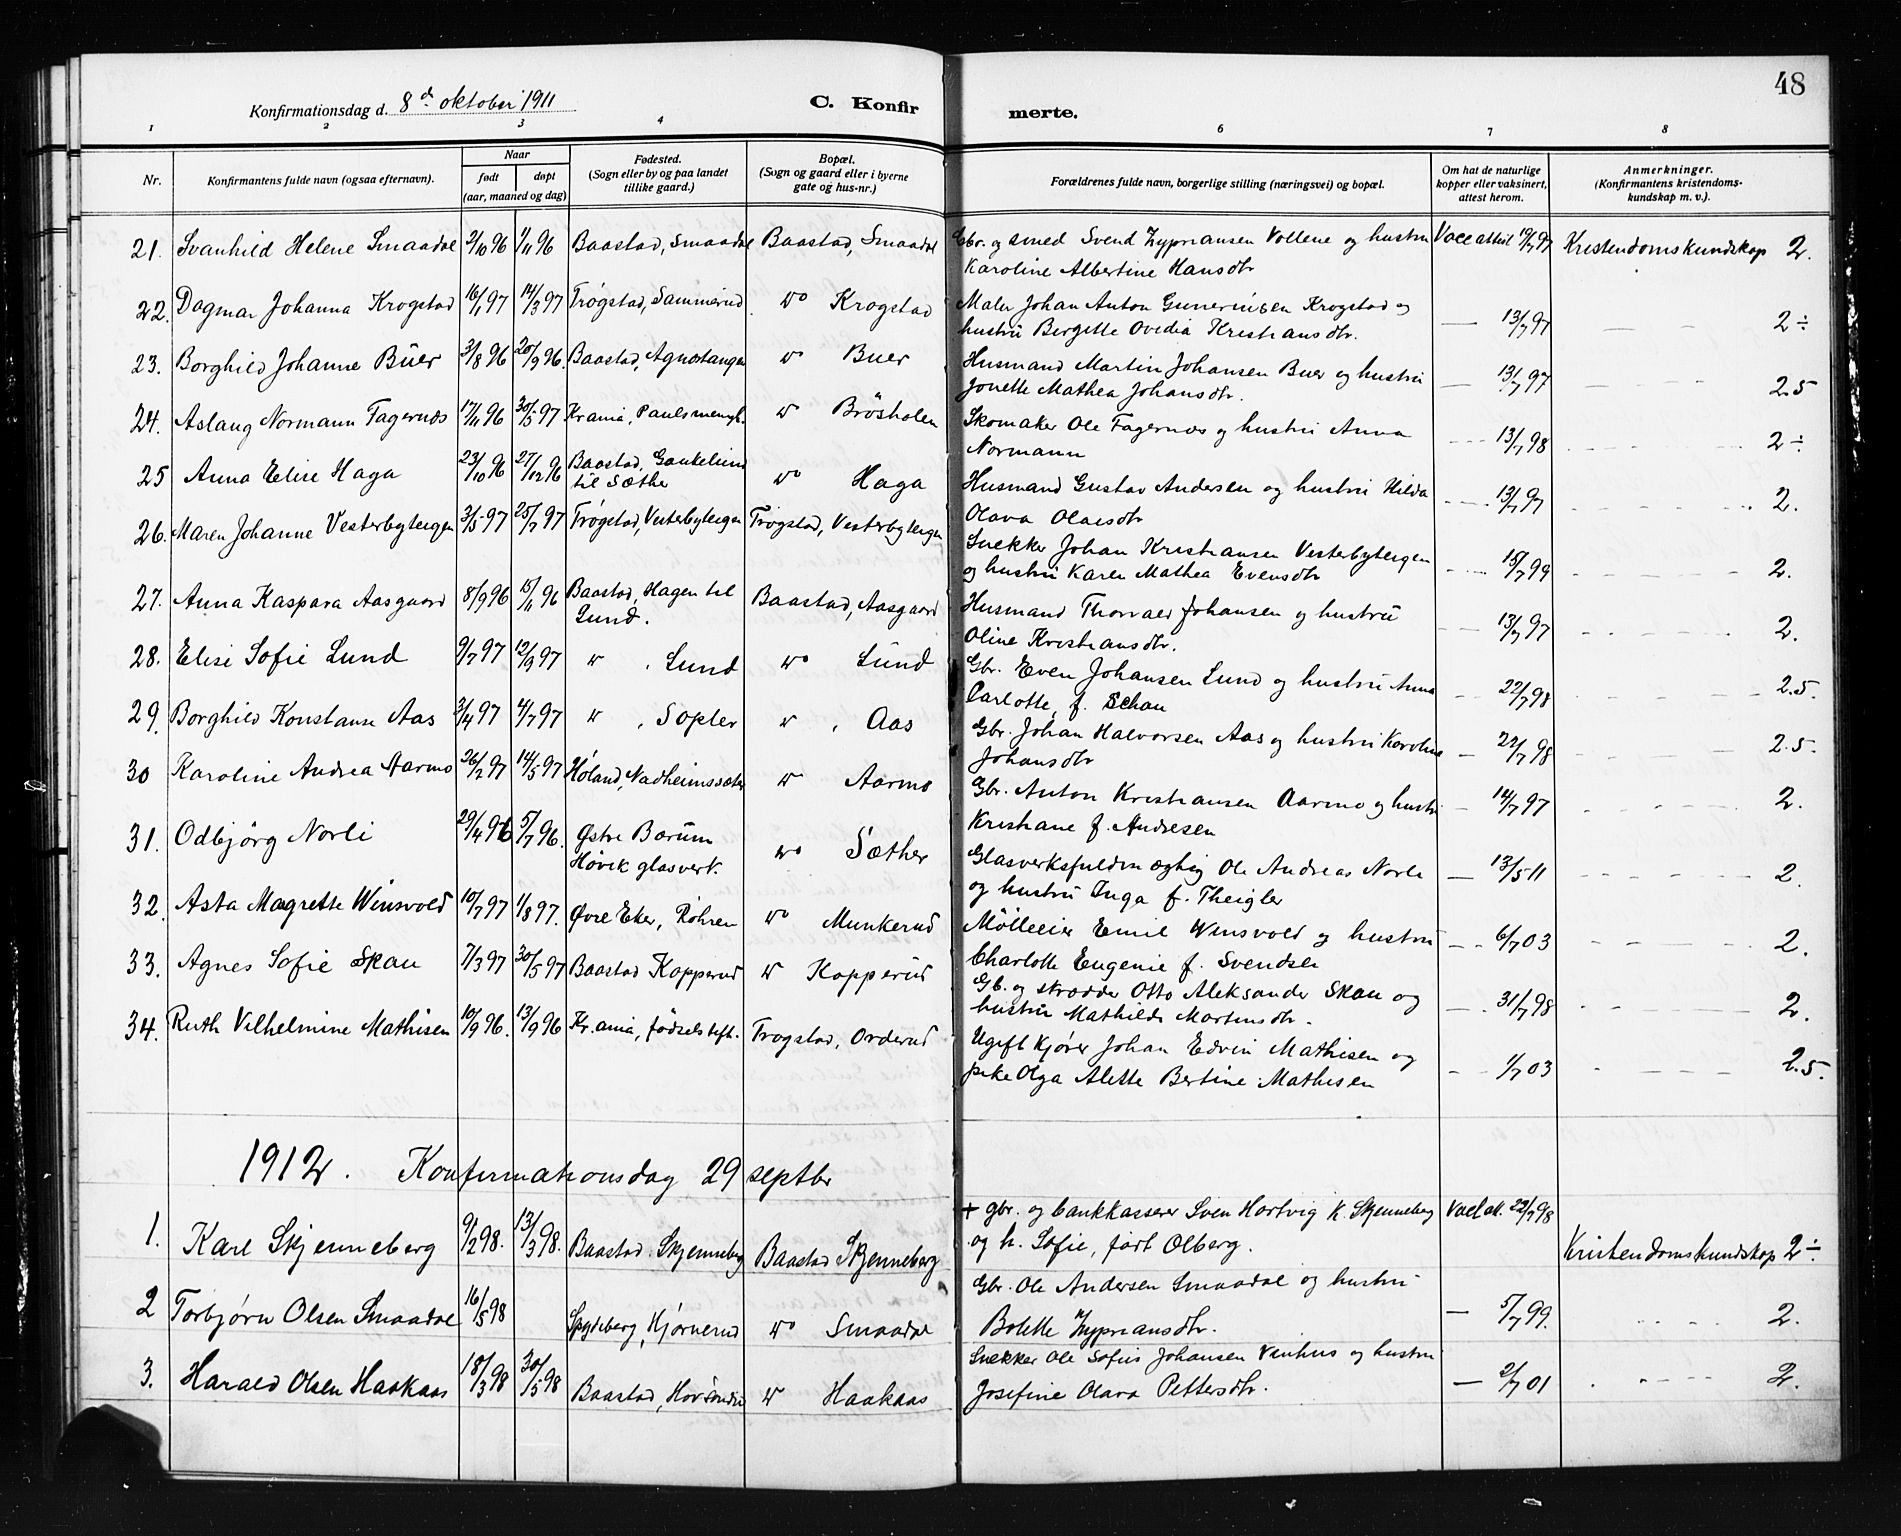 48
Konfirmationsdag d. 8de oktober 1911
C. Konfirmerte.
1 2 3 4 6 7 8
Nr.
Konfirmantens fulde navn (ogsaa efternavn).
Naar
født døpt
(aar, maaned og dag)
Fødested.
(Sogn eller by og paa landet
tillike gaard.)
Bopæl.
(Sogn og gaard eller i byerne
gate og hus-nr.)
Forældrenes fulde navn, borgerlige stilling (næringsvei) og bopæl.
Om hat de naturlige
kopper eller vaksinert,
attest herom.
Anmerkninger.
(Konfirmantens kristendoms-
kundskap m. v.).
21. Svanhild Helene Smaadal 2/10 96 1/11 96 Baastad, Smaadal Baastad, Smaadal Gbr. og smed Svend Zyprians​en Vollene og hustru Vacc attest 19/7 97 Kristendomskundskap 2.
Karoline Albertine Hansdtr
22. Dagmar Johanna Krogstad 16/1 97 14/3 97 Trøgstad, Sammerud do Krogstad Maler Johan Anton Gunneriusen Krogstad og
hustru Bergitte Ovedia Kristiansdtr. — 13/7 97 — — 2÷
23. Borghild Johanne Buer 3/8 96 20/9 96. Baastad, Agnostangen do Buer Husmand Martin Johansen Buer og hustru
Jonette Mathea Johansdtr. — 13/7 97 — — — 2.5
24. Aslaug Normann Fagernæs 17/11 96 30/5 97 Kr.ania, Paulsmenigh. do Brøsholen Skomaker Ole Fagernæs og hustru Anna
Normann — 13/7 98 2÷
25 Anna Elise Haga 23/10 96 27/12 96 Baastad, Gaukelund
til Sæther do Haga Husmand Gustav Andersen og hustru Hilda
Olava Olaisdtr — 13/7 97 2.
26. Maren Johanne Vesterbyteigen 3/5 97 25/7 97 Trøgstad, Vesterbyteigen Trøgstad, Vesterbyteigen Snekker Johan Kristiansen Vesterbyteigen
og hustru Karen Mathea Evensdtr — 15/7 99 2.
27. Anna Kaspara Aasgaard 8/9 96 15/11 96 Baastad, Hagen til
Lund. Baastad, Aasgaard Husmand Thorvald Johansen og hustru
Oline Kristiansdtr. — 13/7 97 2.
28. Elise Sofie Lund 9/7 97 12/9 97 do, Lund do Lund Gbr. Even Johansen Lund og hustru Anna
Carlotte, f. Schau — 22/7 98 2.5.
29. Borghild Konstanse Aas 3/4 97 4/7 97 do, Sopler do, Aas Gbr. Johan Halvorsen Aas og hustru Karoline
Johansdtr — 22/7 98 2.5.
30 Karoline Andrea Aarmo 26/2 97 14/5 97 Høland, Nadheimssæter do Aarmo Gbr. Anton Kristiansen Aarmo og hustru
Kristiane f. Andresen — 14/7 97 2.
31. Odbjørg Norli 29/4 96 5/7 96. Østre Bærum
Høvik glasverk. do Sæther Ole Andreas Norli
og hustru Inga f. Theigler — 13/5 11 2.
32. Asta Magrette Winsvold 10/7 97 1/8 97. Øvre Eker, Røhren do Munkerud Mølleeier Emil Winsvold og hustru
Charlotte Eugenie f. Svendsen — 6/7 03 2.
33. Agnes Sofie Skau 7/3 97 30/5 97 Baastad Kopperud do Kopperud Gb. og skrædder Otto Aleksander Skau og
hustru Mathilde Martinsdtr. — 31/7 98 2.
34. Ruth Vilhelmine Mathisen 10/9 96. 13/9 96 Kr.ania, fødselsstift. Trøgstad, Orderud Ugift kjører Johan Edvin Mathisen og
pike Olga Alette Bertine Mathisen — 1/7 03 2.5.
1912. Konfirmationsdag 29 septbr
1. Karl Skjenneberg 9/2 98. 13/3 98. Baastad Skjenneberg Baastad Skjenneberg + gbr. og bankkasserer Sven Hartvig K. Skjenneberg Vacc att. 22/7 98
og h. Sofie, født Olberg. Kristendomskundskap 2÷
2 Torbjørn Olsen Smaadal 16/5 98 Spydeberg, Hjørnerud do Smaadal Gbr. Ole Andersen Smaadal og hustru
Bolette Zypriansdtr. — 5/7 99. 2.
3. Harald Olsen Haakaas 18/3 98 30/5 98 Baastad, Hov søndre do Haakaas Snekker Ole Sofus Johansen Venhus og hustru
Josefine Olava Pettersdtr. — 2/7 01 2.